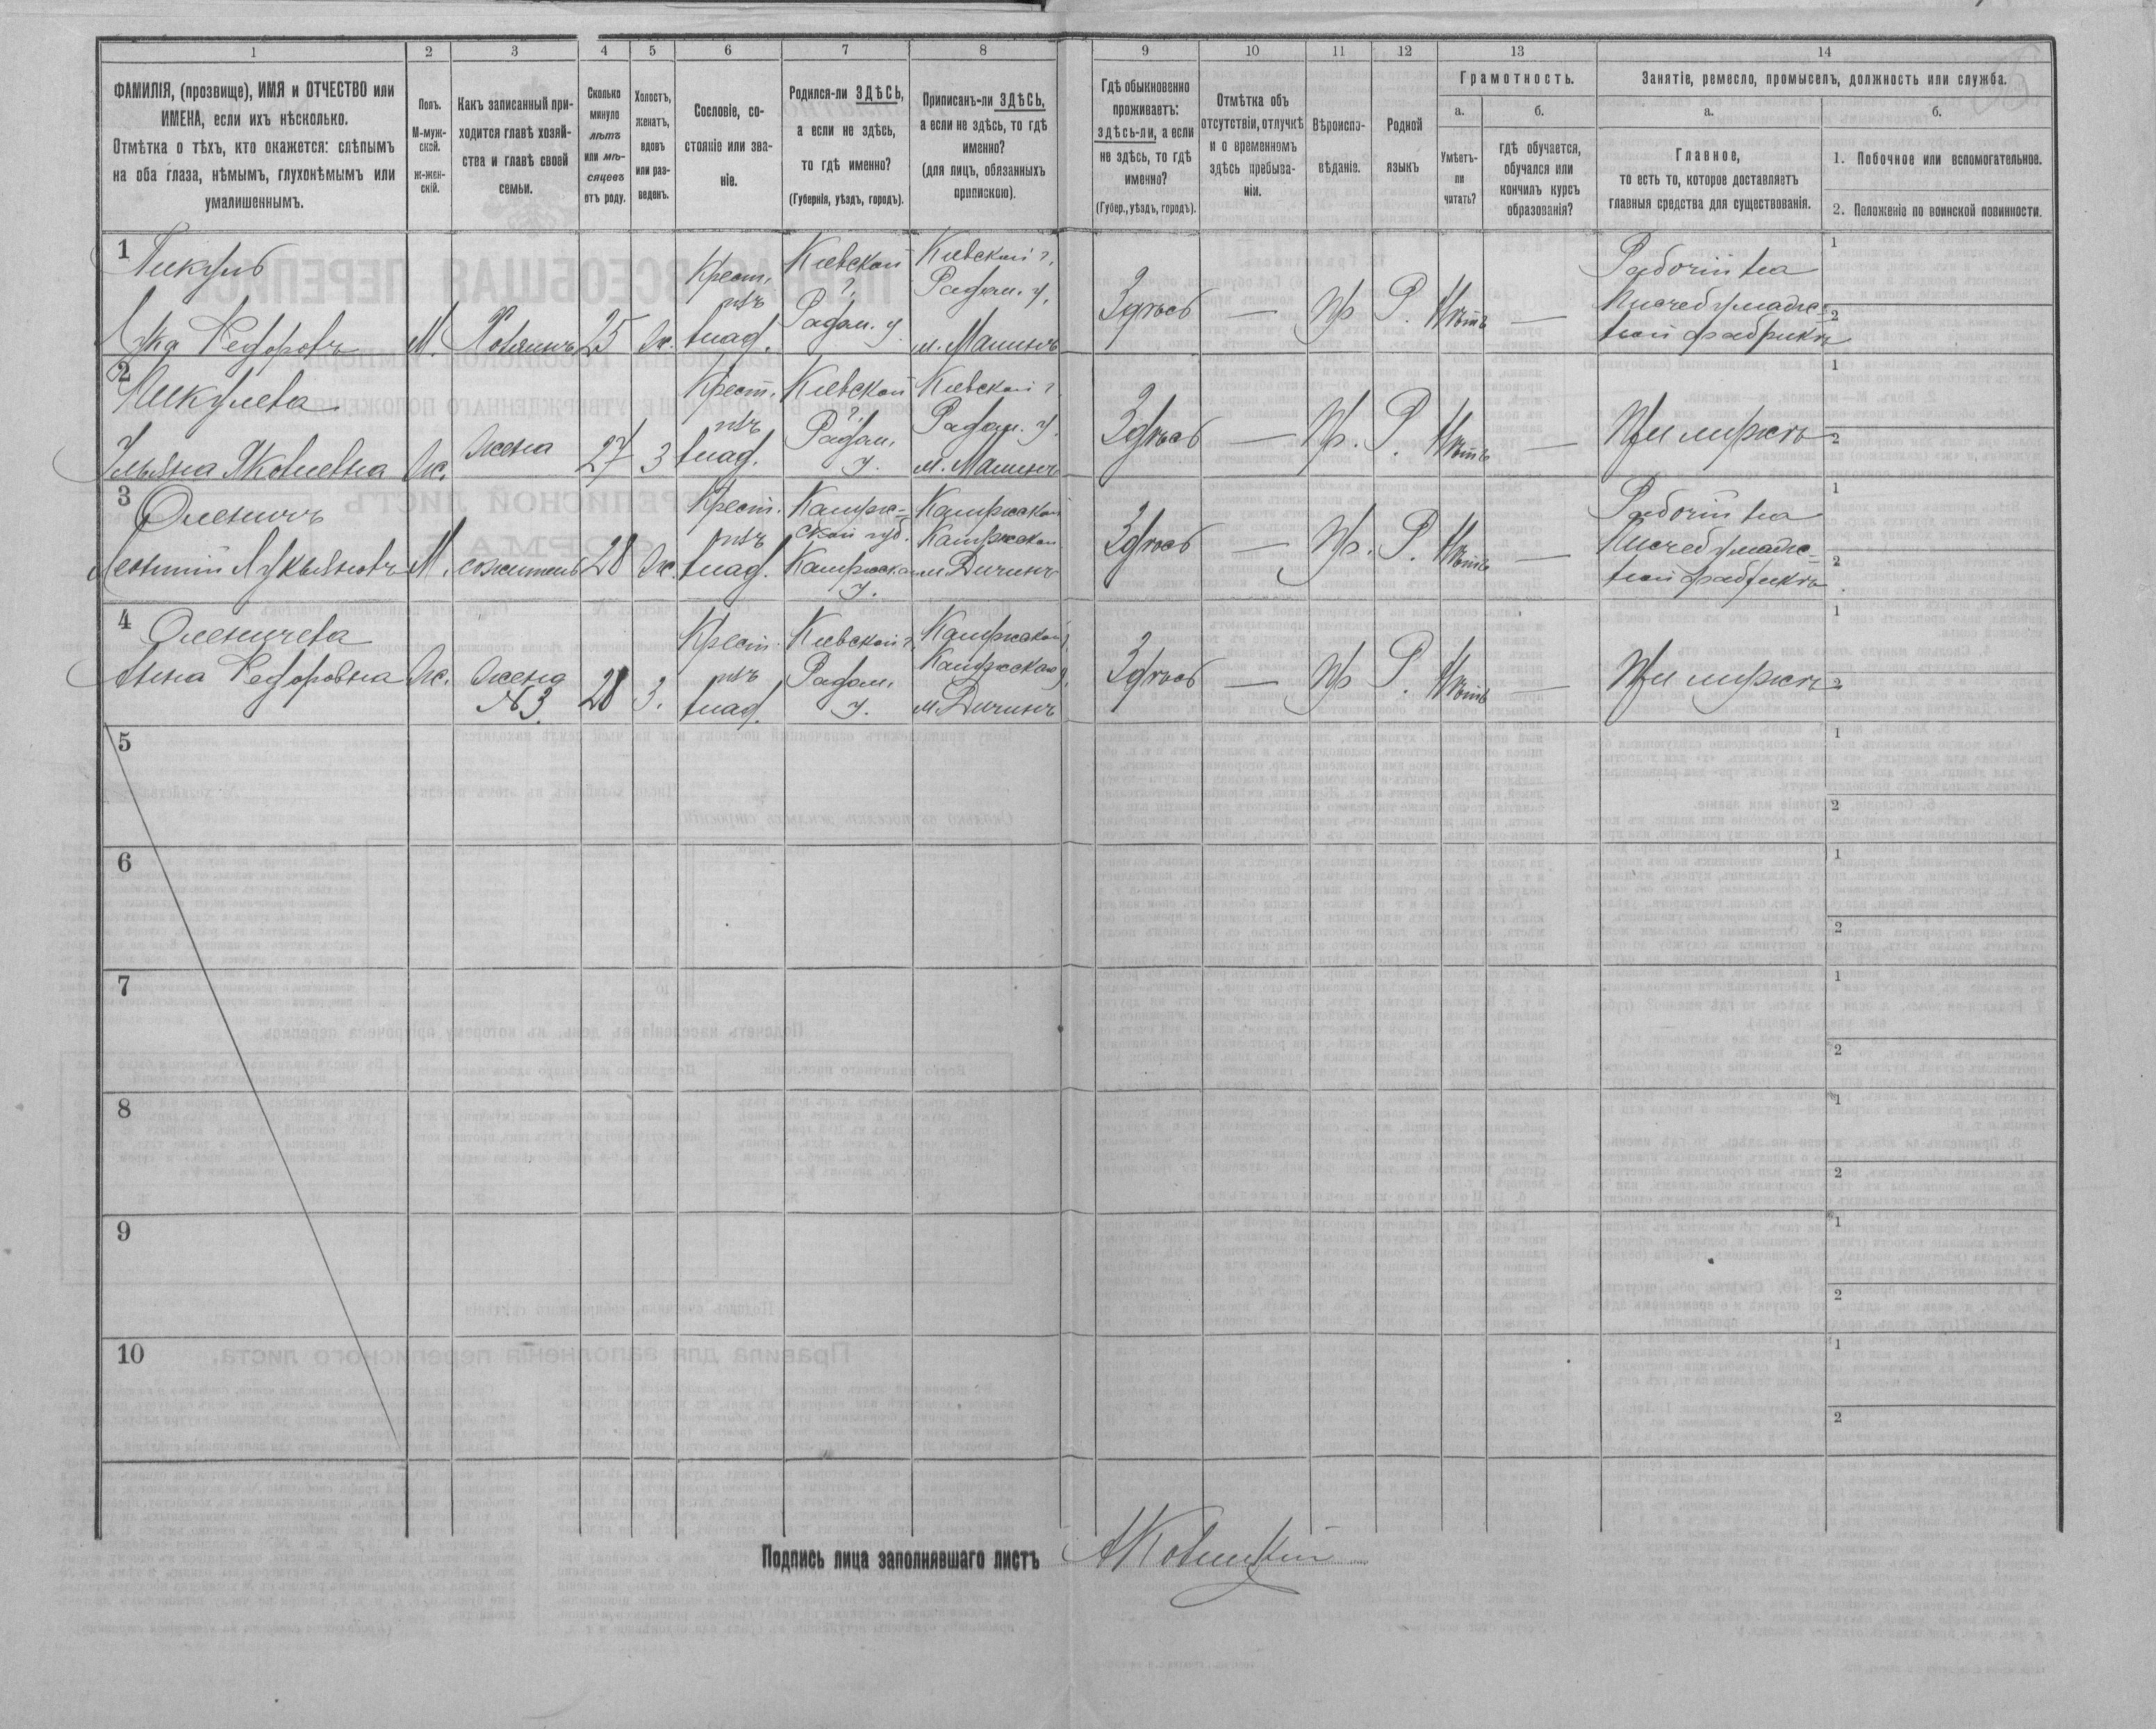 1 2 3 4 5 6 7 8 9 10 11 12 13 14
ФАМИЛІЯ, (прозвище), ИМЯ и ОТЧЕСТВО или
ИМЕНА, если ихъ нѣсколько.
Отмѣтка о тѣхъ, кто окажется: слѣпымъ
на оба глаза, нѣмымъ, глухонѣмымъ или
умалишеннымъ.
Полъ.
М-муж-
ской.
ж-жен-
скій.
Какъ записанный при-
ходится главѣ хозяй-
ства и главѣ своей
семьи.
Сколько
минуло
лѣтъ
или мѣ-
сяцевъ
отъ роду.
Холостъ,
женатъ,
вдовъ
или раз-
веденъ.
Сословіе, со-
стояніе или зва-
ніе.
Родился-ли ЗДѢСЬ,
а если не здѣсь,
то гдѣ именно?
(Губернія, уѣздъ, городъ).
Приписанъ-ли ЗДѢСЬ,
а если не здѣсь, то гдѣ
именно?
(для лицъ, обязанныхъ
припискою).
Гдѣ обыкновенно
проживаетъ:
здѣсь-ли, а если
не здѣсь, то гдѣ
именно?
(Губер., уѣздъ, городъ).
Отмѣтка объ
отсутствіи, отлучкѣ
и о временномъ
здѣсь пребыва-
ніи.
Вѣроиспо-
вѣданіе.
Родной
языкъ
Грамотность.
а.
Умѣетъ-
ли
читать?
б.
гдѣ обучается,
обучался или
кончилъ курсъ
образованія?
Занятіе, ремесло, промыселъ, должность или служба.
а.
Главное,
то есть то, которое доставляетъ
главныя средства для существованія.
б.
1. Побочное или вспомогательное.
2. Положеніе по воинской повинности.
1
Пикуль
Лука Федоровъ
М.
Хозяинъ
25
Ж.
Крест.
изъ
влад.
Кіевской
г.
Радом. у.
Кіевской г.
Радом. у.
м. Малинъ
Здѣсь
—
Пр
Р.
Нѣтъ
—
Рабочій на
Писчебумаж-
ной фабрикѣ
1
2
2
Пикулева
Ульяна Яковлевна
Ж.
Жена
27
З
Крест.
изъ
влад.
Кіевской
г.
Радом.
у.
Кіевской г.
Радом. у.
м. Малинъ
Здѣсь
—
Пр.
Р.
Нѣтъ
—
При мужѣ
1
2
3
Оленичъ
Леонтій Лукьяновъ
М.
сожитель
28
Ж.
Крест.
изъ
влад.
Калуж-
ской губ.
Калужска
у.
Калужской
Калужской
Здѣсь
—
Пр.
Р.
Нѣтъ
—
Рабочій на
Писчебумаж-
ной фабрикѣ
1
2
4
Оленичева
Анна Федоровна
Ж.
Жена
№ 3.
28
З.
Крест.
изъ
влад.
Кіевской г.
Радом.
у.
Калужской
Калужской
Здѣсь
—
Пр
Р.
Нѣтъ
—
При мужѣ
1
2
5
1
2
6
1
2
7
1
2
8
1
2
9
1
2
10
1
2
Подпись лица заполнявшаго листъ